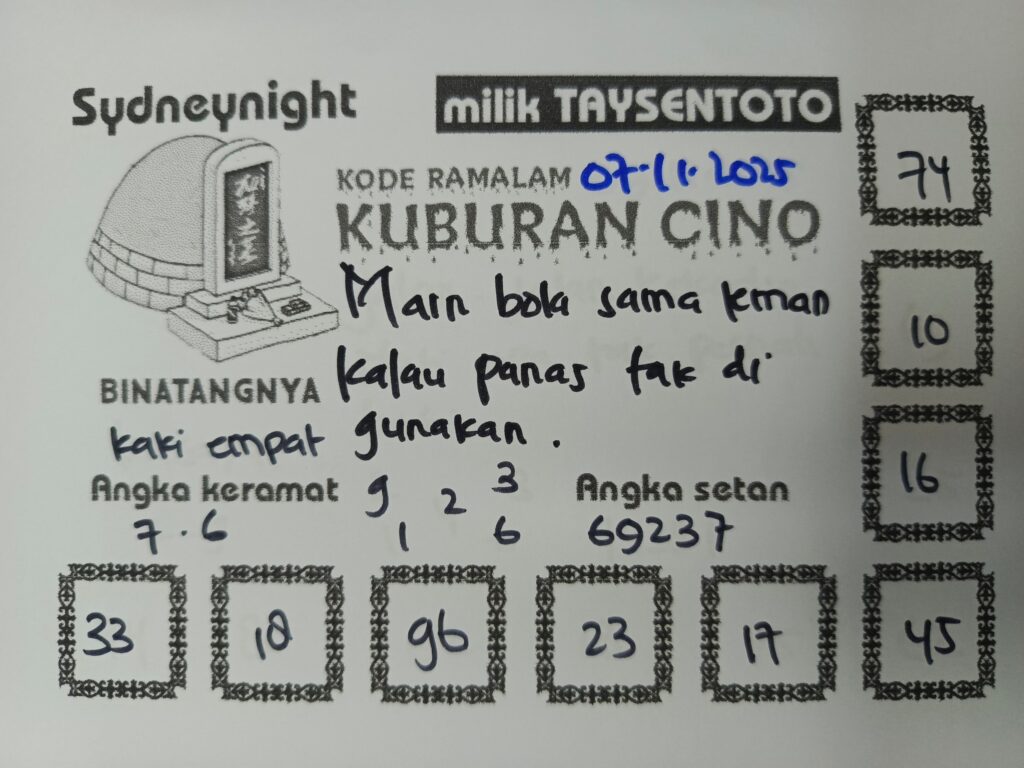 Sydneynight
milik TAYSENTOTO
KODE RAMALAM 07.11.2025
KUBURAN CINO
Main bola sama kman
kalau panas tak di
gunakan.
BINATANGNYA
kaki empat
Angka keramat
7.6
9 2 3
1 6
Angka setan
69237
74
10
16
33 18 96 23 17 45